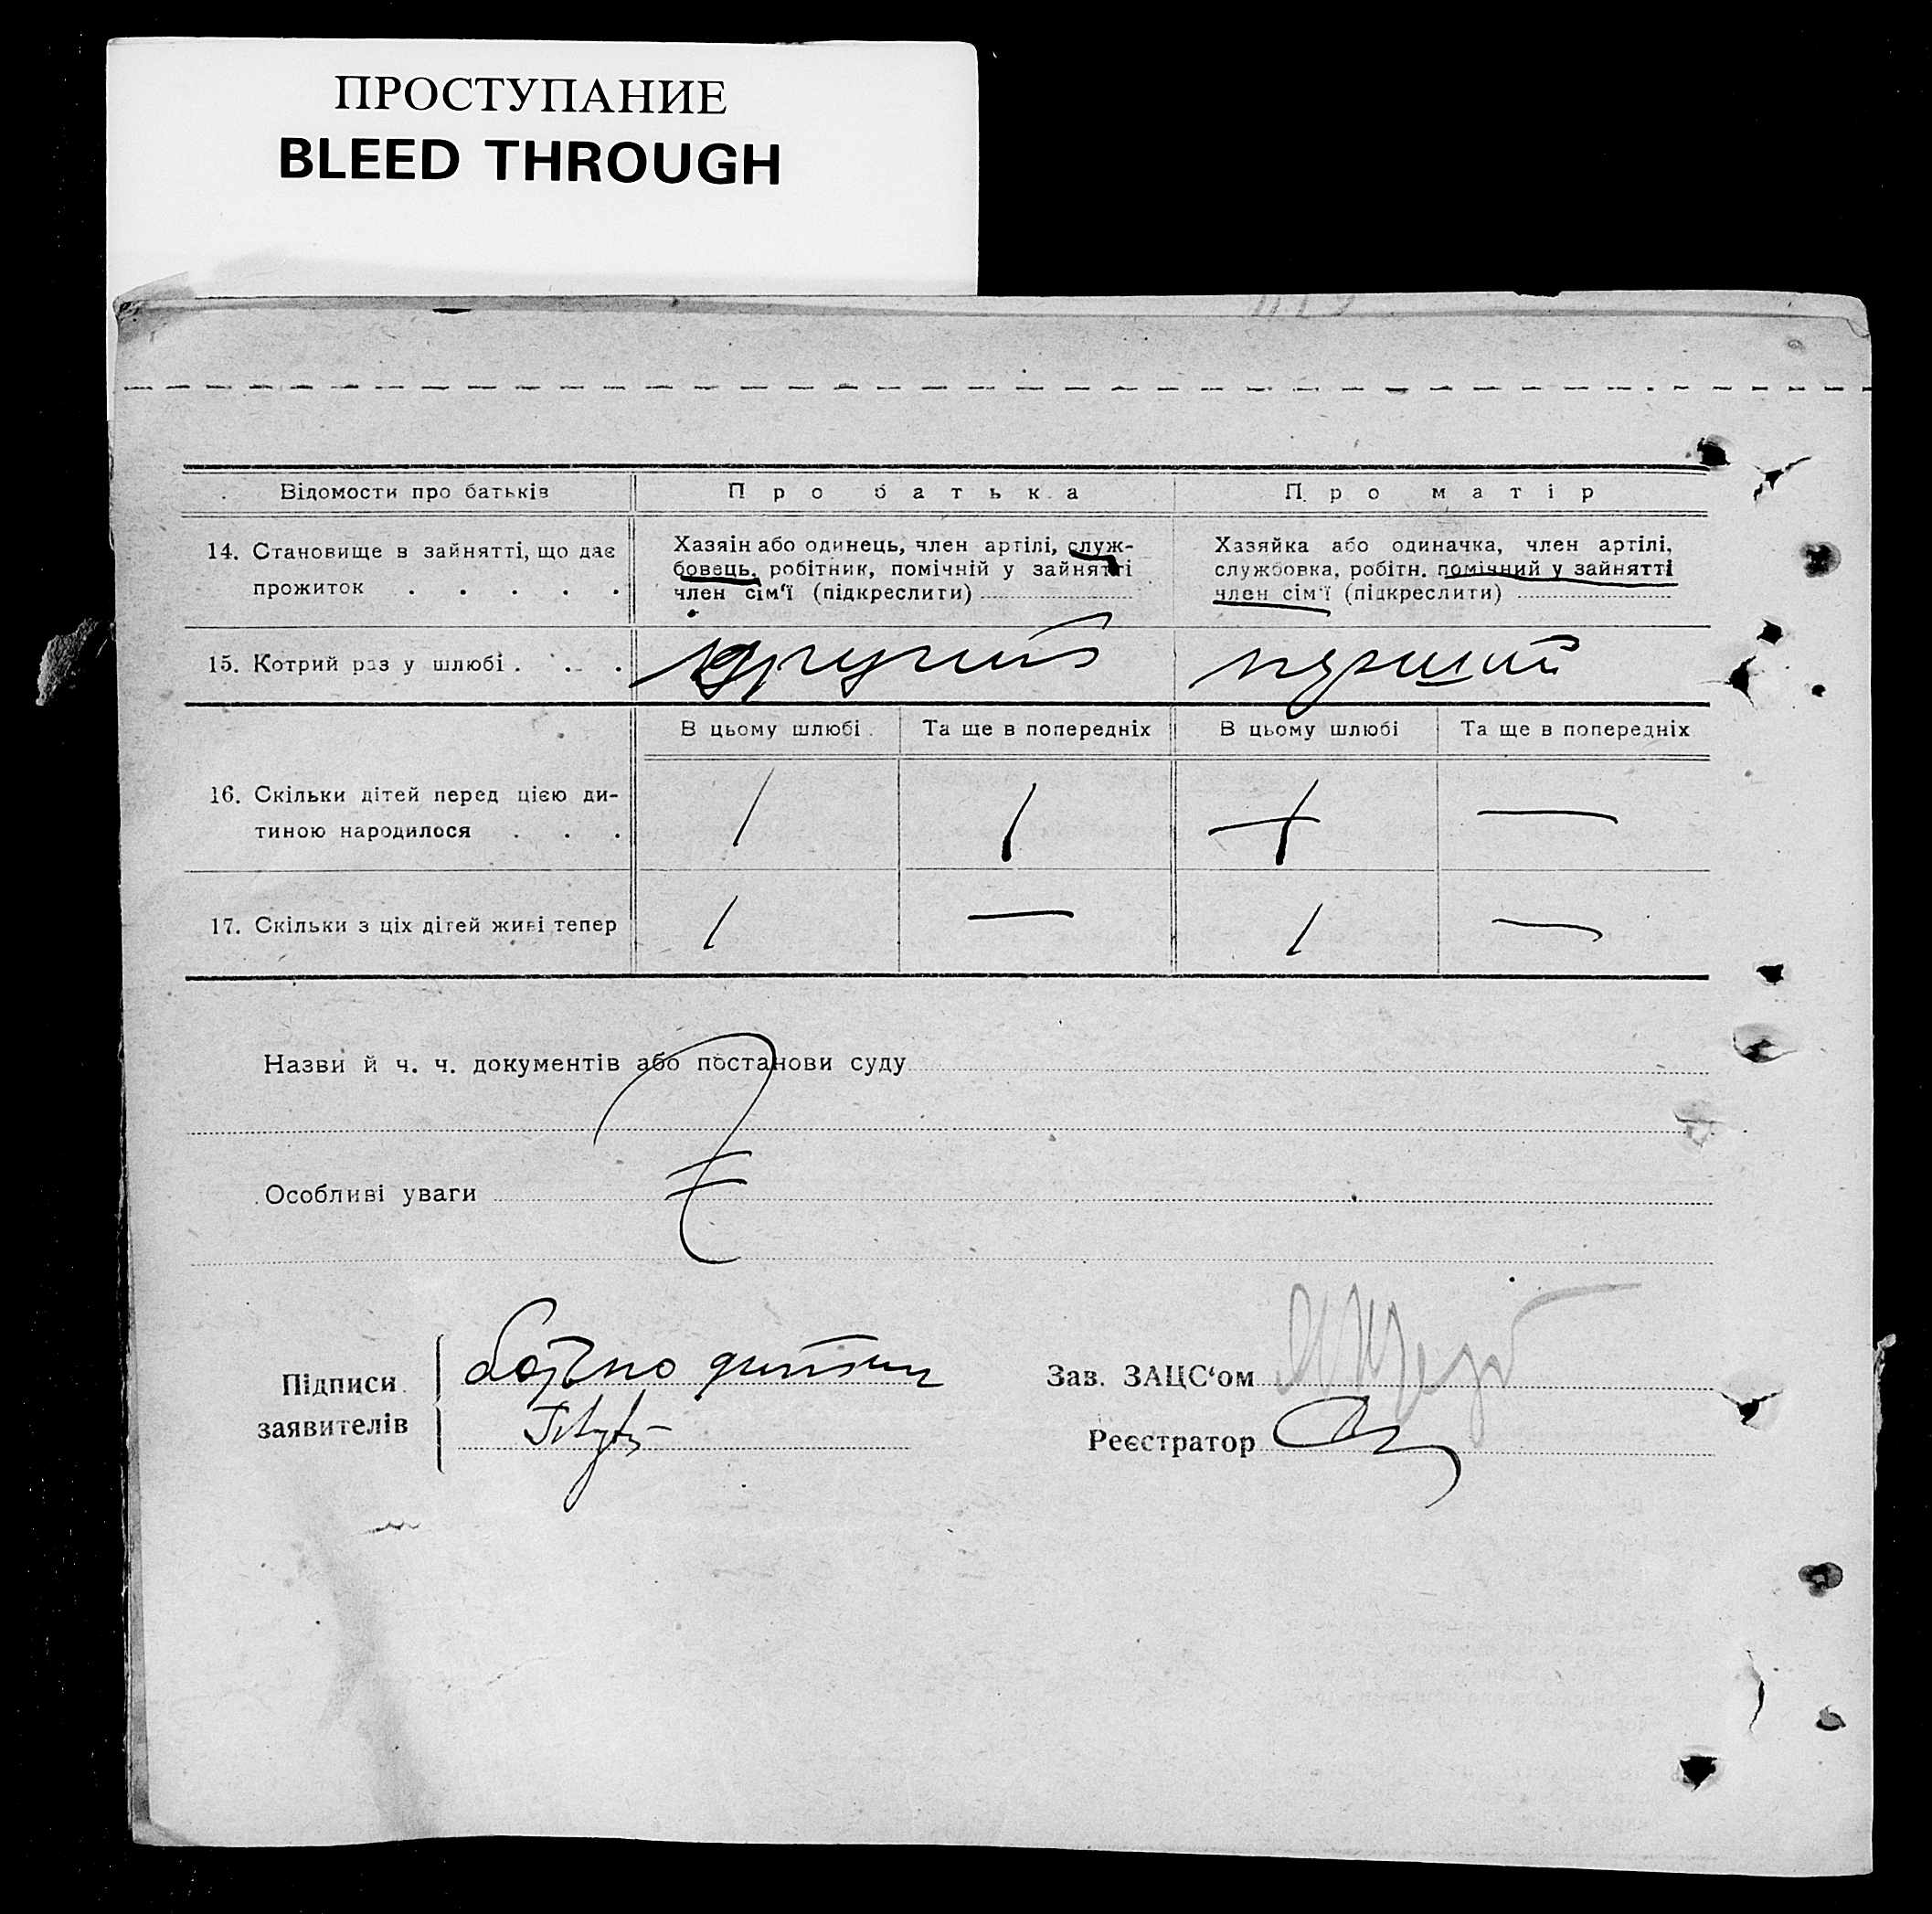 ПРОСТУПАНИЕ
BLEED THROUGH
Відомости про батьків
Про батька
Про матір
14. Становище в зайнятті, що дає
прожиток . . . . .
Хазяїн або одинець, член артілі, служ-
бовець, робітник, помічній у зайнятті
член сім'ї (підкреслити)
Хазяйка або одиначка, член артілі,
службовка, робітн. помічний у зайнятті
член сім'ї (підкреслити)
15. Котрий раз у шлюбі . . . .
другий
перший
В цьому шлюбі
Та ще в попередніх
В цьому шлюбі
Та ще в попередніх
16. Скільки дітей перед цією ди-
тиною народилося . . .
1
1
—
17. Скільки з ціх дітей живі тепер
1
—
1
—
Назви й ч. ч. документів або постанови суду
Особливі уваги
Підписи
заявителів
Зав. ЗАЦС‘ом
Реєстратор